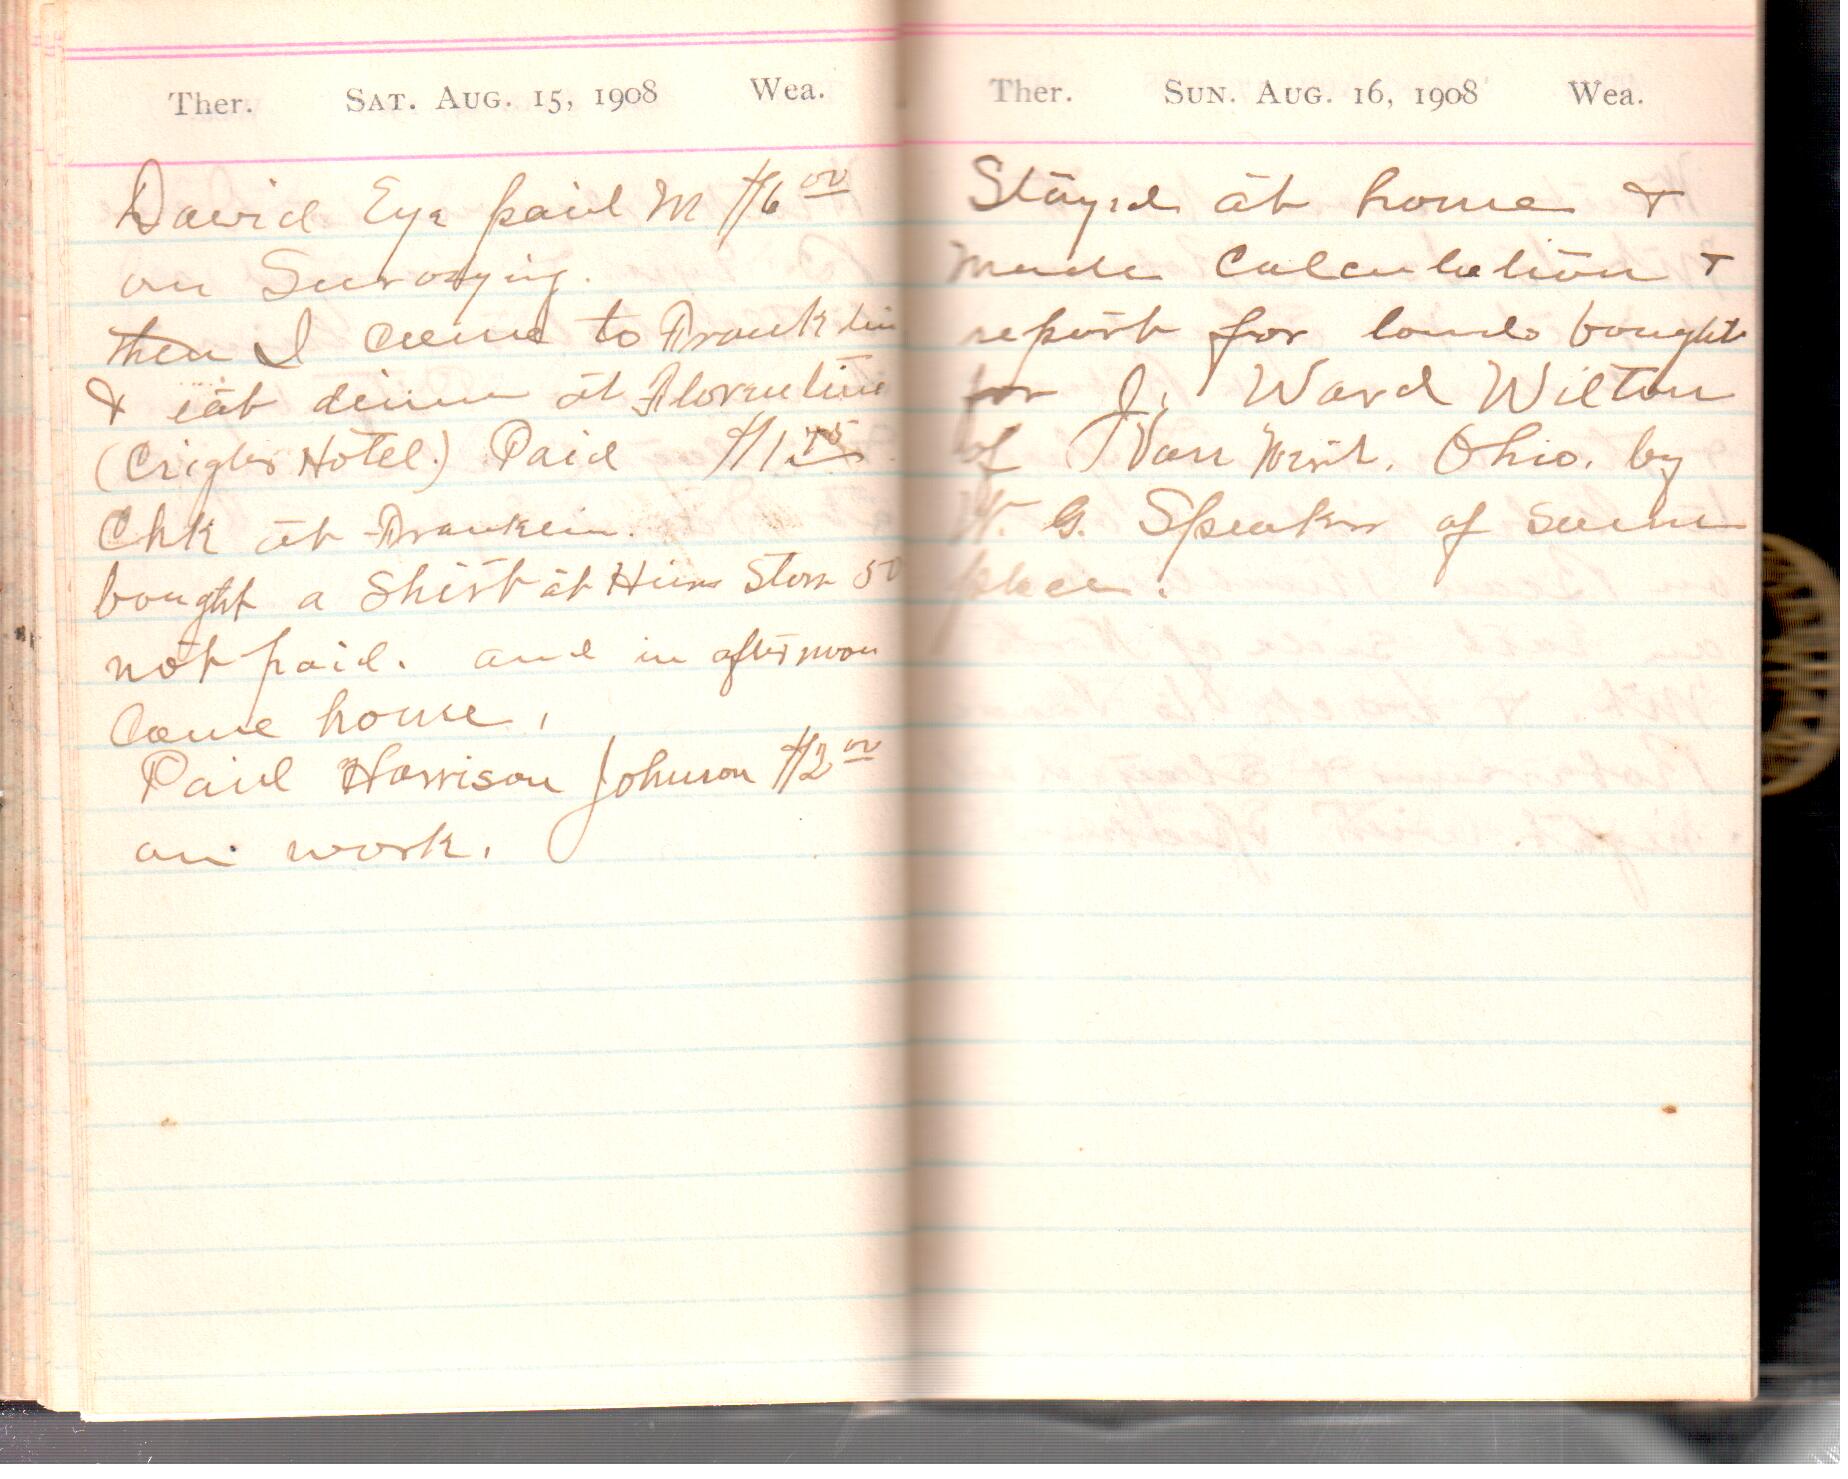 Ther. Sat. Aug. 15, 1908 Wea.
David Eye paid M $6 00
on Surveying.
then I came to Franklin
& eat dinner at Florentine
(Crigler Hotel.) Paid $1 75
Chk at Franklin.
bought a Shirt at Store 50
not paid. and in afternoon
Came home.
Paid Harrison Johnson $2 00
on work.
Ther. Sun. Aug. 16, 1908 Wea.
Stayed at home &
made Calculation &
report for lands bought
for J. Ward Wilton
of Van Wert. Ohio. by
W. G. Speaker of same
place.